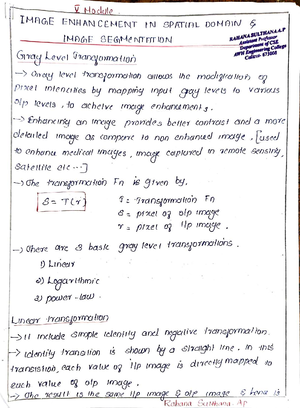 V Module
IMAGE ENHANCEMENT IN SPATIAL DOMAIN &
IMAGE SEGMENTATION
RAHANA SULTHANA A.P
Assistant Professor
Department of CSE
AWH Engineering College
Calicut- 673008
Gray Level Transformation
→ Gray level transformation allows the modification of
pixel intensities by mapping input gray levels to various
o/p levels, to acheive image enhancements.
→ Enhancing an image provides better contrast and a more
detailed image as compare to non enhanced image. [used
to enhance medical images, image captured in remote sensing,
satellite etc...]
→ The transformation Fn is given by.
S = T(r)
T = Transformation Fn
S = pixel of o/p image
r = pixel of i/p image.
→ There are 3 basic gray level transformations.
1) Linear
2) Logarithmic
3) power-law.
Linear transformation
→ It include simple identity and negative transformation.
→ Identity transition is shown by a straight line. In this
transition, each value of i/p image is directly mapped to
each value of o/p image.
→ The result is the same i/p image & o/p image & hence is
Rahana Sulthana. Ap